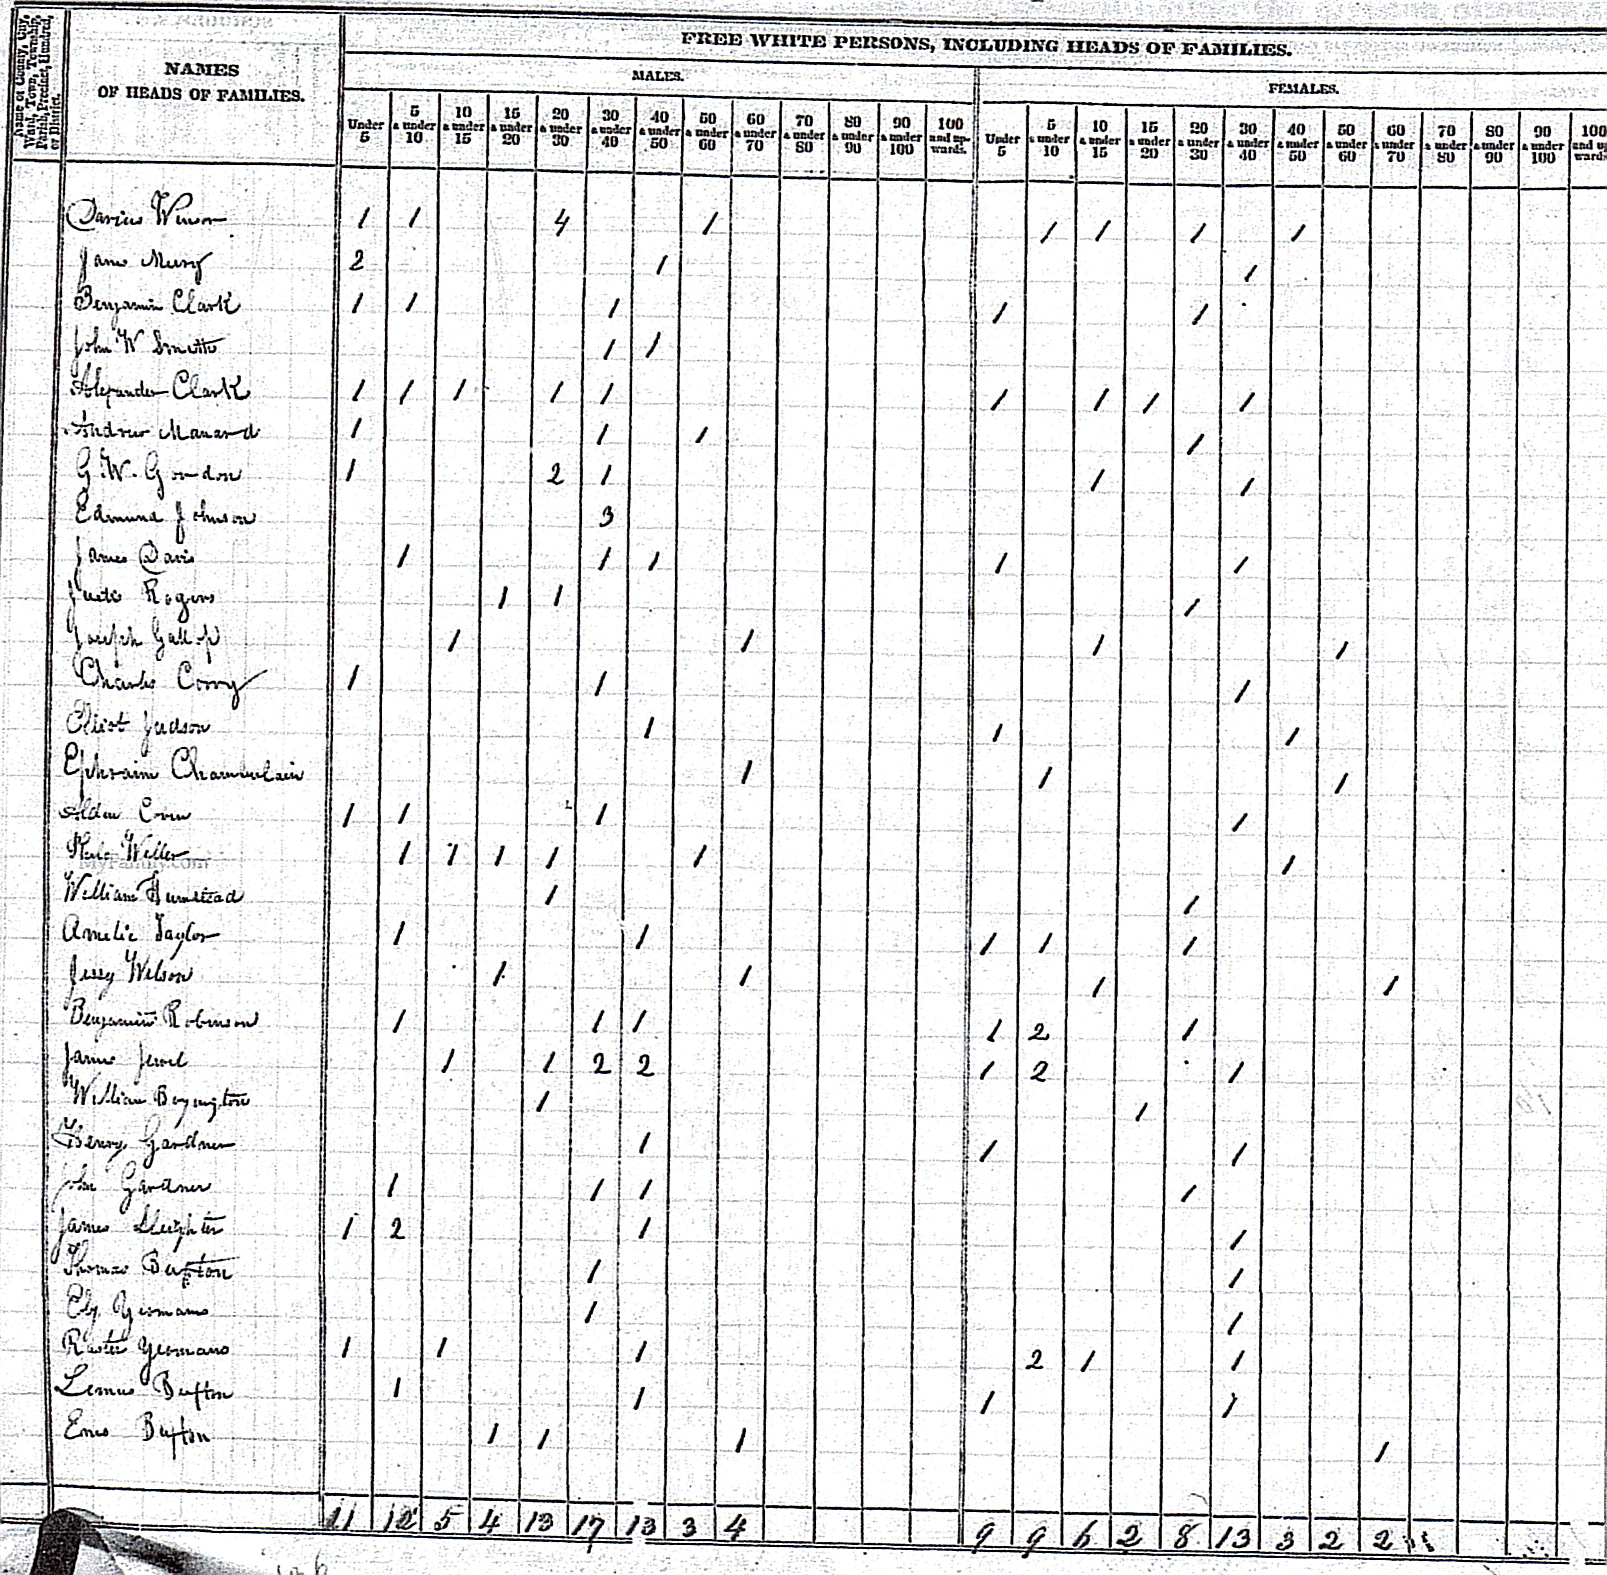 Name of County, City, Ward, Town, Township, Parish, Precinct, Hundred, or District.
NAMES OF HEADS OF FAMILIES.
FREE WHITE PERSONS, INCLUDING HEADS OF FAMILIES.
MALES. FEMALES.
Under 5 5 & under 10 10 & under 15 15 & under 20 20 & under 30 30 & under 40 40 & under 50 50 & under 60 60 & under 70 70 & under 80 80 & under 90 90 & under 100 100 and upwards. Under 5 5 & under 10 10 & under 15 15 & under 20 20 & under 30 30 & under 40 40 & under 50 50 & under 60 60 & under 70 70 & under 80 80 & under 90 90 & under 100 100 and upwards
Darius Winsor 1 1 4 1 1 1 1 1
2 1 1
Benjamin Clark 1 1 1 1 1
John W 1 1
Alexander Clark 1 1 1 1 1 1 1 1 1
Andrew Manard 1 1 1 1
G W. Gordon 1 2 1 1 1
Edmund Johnson 3
James Davis 1 1 1 1 1
Rogers 1 1 1
Joseph Gallop 1 1 1 1
Charles Corry 1 1 1
Eliot Judson 1 1 1
Ephraim Chamberlain 1 1 1
Alden 1 1 1 1
Weller 1 1 1 1 1 1
MyFamily.com
William 1 1
Taylor 1 1 1 1 1
Wilson 1 1 1 1
Benjamin Robinson 1 1 1 1 2 1
James Jewel 1 1 2 2 1 2 1
William Boyington 1 1
Henry Gardner 1 1 1
John Gardner 1 1 1 1
James 1 2 1 1
Thomas Buxton 1 1
Yeomans 1 1
Yeomans 1 1 1 2 1 1
Buxton 1 1 1 1
Buxton 1 1 1 1
11 12 5 4 13 17 13 3 4 9 9 6 2 8 13 3 2 2